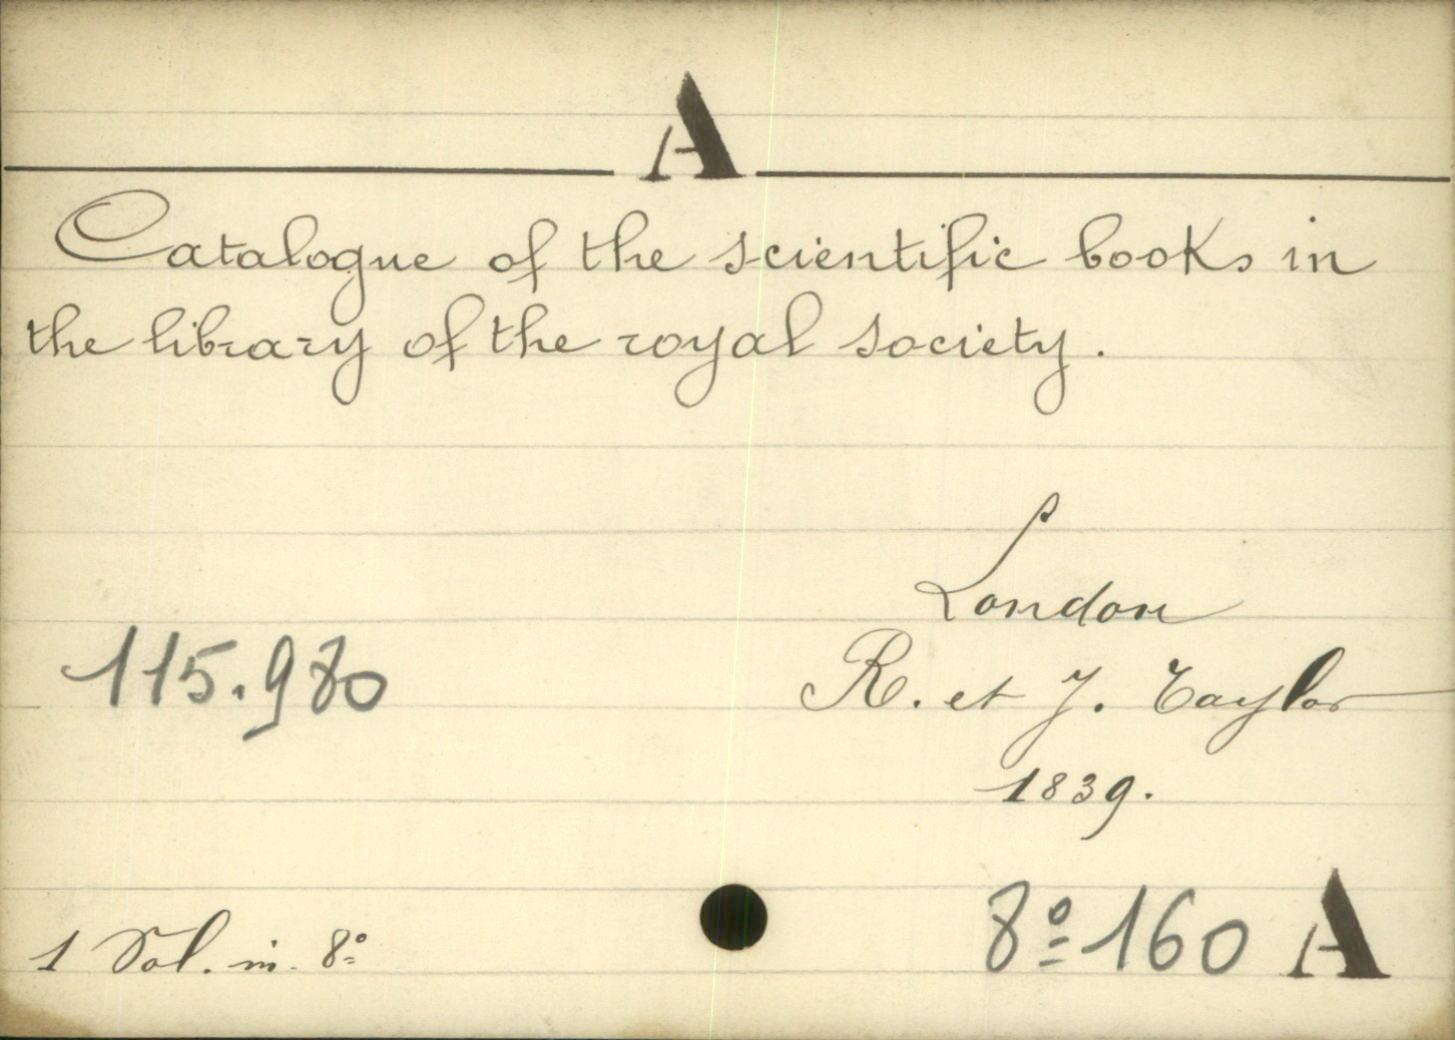 A
Catalogue of the scientific books in
the library of the royal society.
London
115.980
R. et J. Taylor
1839.
1 Vol. in. 8º
8º 160 A